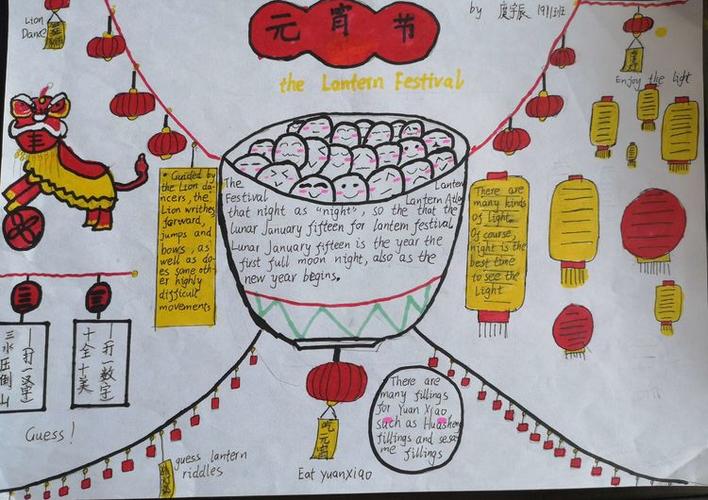 元宵节
by
the Lantern Festival
Lion
Dance
Enjoy the light
• Guided by
the Lion da-
ncers, the
Lion writhes
forward,
jumps and
bows, as
well as do-
es some oth
er highly
difficult
movements
The Lantern
Festival
that night as "night", so the that the
lunar January fifteen for lantern festival
Lunar January fifteen is the year the
first full moon night, also as the
new year begins.
There are
many kinds
of Light.
Of course,
night is the
best time
to see the
Light
三水压倒山
—打一汉字
十全十美
—打一数字
Guess!
guess lantern
riddles
吃元宵
Eat yuanxiao
There are
many fillings
for Yuan Xiao
such as Huasheng
fillings and sesa
me fillings